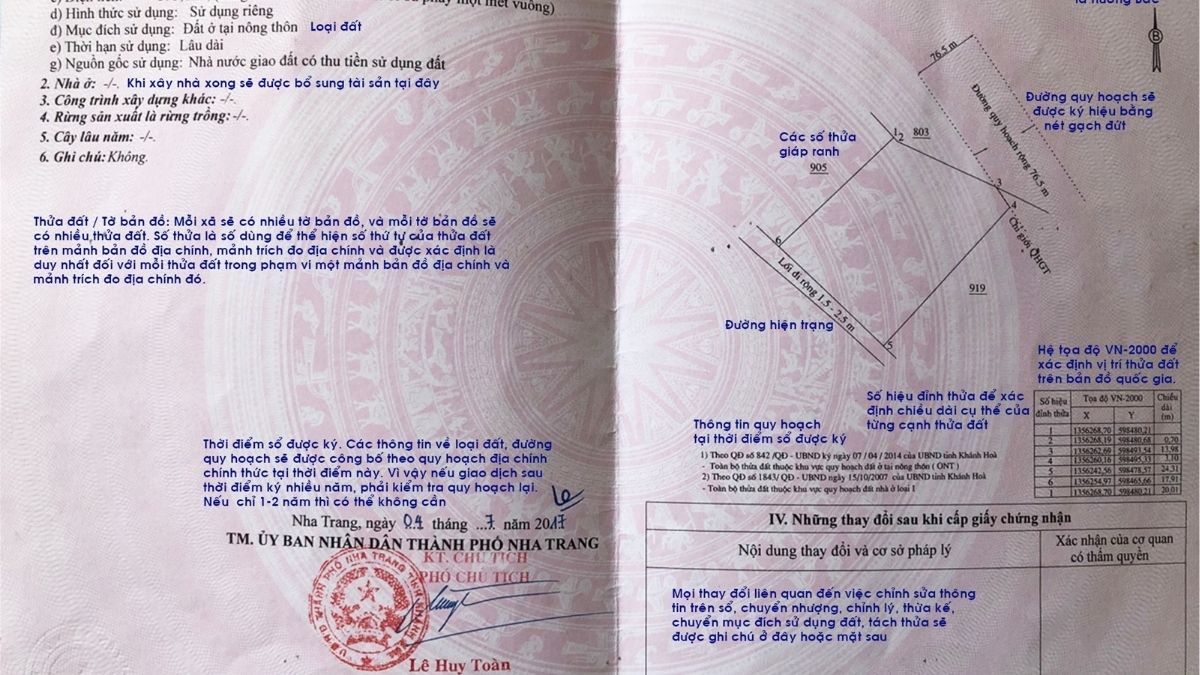 d) Hình thức sử dụng: Sử dụng riêng
đ) Mục đích sử dụng: Đất ở tại nông thôn Loại đất
e) Thời hạn sử dụng: Lâu dài
g) Nguồn gốc sử dụng: Nhà nước giao đất có thu tiền sử dụng đất
2. Nhà ở: -/-. Khi xây nhà xong sẽ được bổ sung tài sản tại đây
3. Công trình xây dựng khác: -/-.
4. Rừng sản xuất là rừng trồng: -/-.
5. Cây lâu năm: -/-.
6. Ghi chú: Không.
Thửa đất / Tờ bản đồ: Mỗi xã sẽ có nhiều tờ bản đồ, và mỗi tờ bản đồ sẽ
có nhiều,thửa đất. Số thửa là số dùng để thể hiện số thứ tự của thửa đất
trên mảnh bản đồ địa chính, mảnh trích đo địa chính và được xác định là
duy nhất đối với mỗi thửa đất trong phạm vi một mảnh bản đồ địa chính và
mảnh trích đo địa chính đó.
Thời điểm sổ được ký. Các thông tin về loại đất, đường
quy hoạch sẽ được công bố theo quy hoạch địa chính
chính thức tại thời điểm này. Vì vậy nếu giao dịch sau
thời điểm ký nhiều năm, phải kiểm tra quy hoạch lại.
Nếu chỉ 1-2 năm thì có thể không cần
Nha Trang, ngày 04 tháng 7 năm 2017
TM. ỦY BAN NHÂN DÂN THÀNH PHỐ NHA TRANG
KT. CHỦ TỊCH
PHÓ CHỦ TỊCH
Lê Huy Toàn
B
76.5 m
Đường quy hoạch rộng 76.5 m
Đường quy hoạch sẽ
được ký hiệu bằng
nét gạch đứt
Các số thửa
giáp ranh
905
1
2
803
3
4
Chỉ giới QHGT
6
Lối đi rộng 1.5 - 2.5 m
919
5
Đường hiện trạng
Hệ tọa độ VN-2000 để
xác định vị trí thửa đất
trên bản đồ quốc gia.
Số hiệu đỉnh thửa để xác
định chiều dài cụ thể của
từng cạnh thửa đất
Số hiệu đỉnh thửa Tọa độ VN-2000 Chiều dài (m)
X Y
1 1356268,70 598480,21
2 1356268,19 598480,68 0,70
3 1356262,69 598493,54 13,98
4 1356260,16 598495,33 3,10
5 1356242,56 598478,57 24,31
6 1356254,97 598465,66 17,91
1 1356268,70 598480,21 20,01
Thông tin quy hoạch
tại thời điểm sổ được ký
1) Theo QĐ số 842 /QĐ - UBND ký ngày 07 / 04 / 2014 của UBND tỉnh Khánh Hoà
- Toàn bộ thửa đất thuộc khu vực quy hoạch đất ở tại nông thôn ( ONT )
2) Theo QĐ số 1843/ QĐ - UBND ngày 15/10/2007 của UBND tỉnh Khánh Hoà
- Toàn bộ thửa đất thuộc khu vực quy hoạch đất nhà ở loại 1
IV. Những thay đổi sau khi cấp giấy chứng nhận
Nội dung thay đổi và cơ sở pháp lý
Xác nhận của cơ quan
có thẩm quyền
Mọi thay đổi liên quan đến việc chỉnh sửa thông
tin trên sổ, chuyển nhượng, chỉnh lý, thừa kế,
chuyển mục đích sử dụng đất, tách thửa sẽ
được ghi chú ở đây hoặc mặt sau